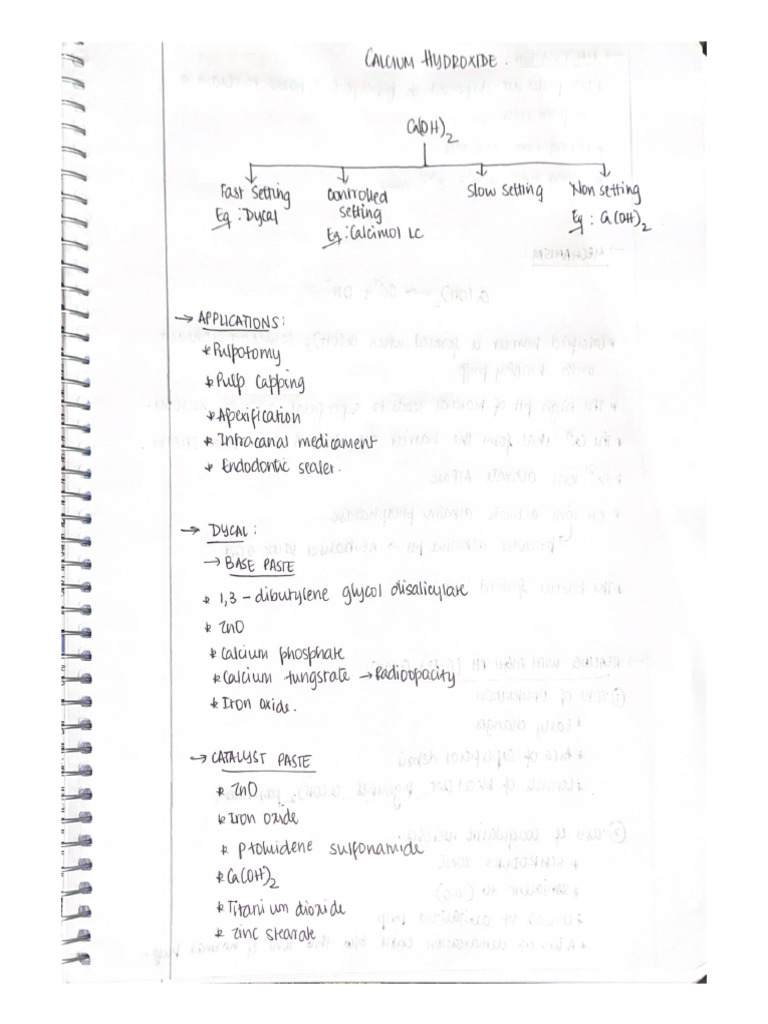 CALCIUM HYDROXIDE.
Ca(OH)2
Fast Setting
Eg: Dycal
Controlled
setting
Eg: Calcimol LC
Slow Setting
Non setting
Eg: Ca(OH)2
→ APPLICATIONS:
* Pulpotomy
* Pulp Capping
* Apexification
* Intracanal medicament
* Endodontic sealer.
→ DYCAL:
→ BASE PASTE
* 1,3 - dibutylene glycol disalicylate
* ZnO
* Calcium phosphate
* Calcium tungstate → Radioopacity
* Iron oxide.
→ CATALYST PASTE
* ZnO
* Iron oxide
* P toluidene sulfonamide
* Ca(OH)2
* Titanium dioxide
* Zinc stearate